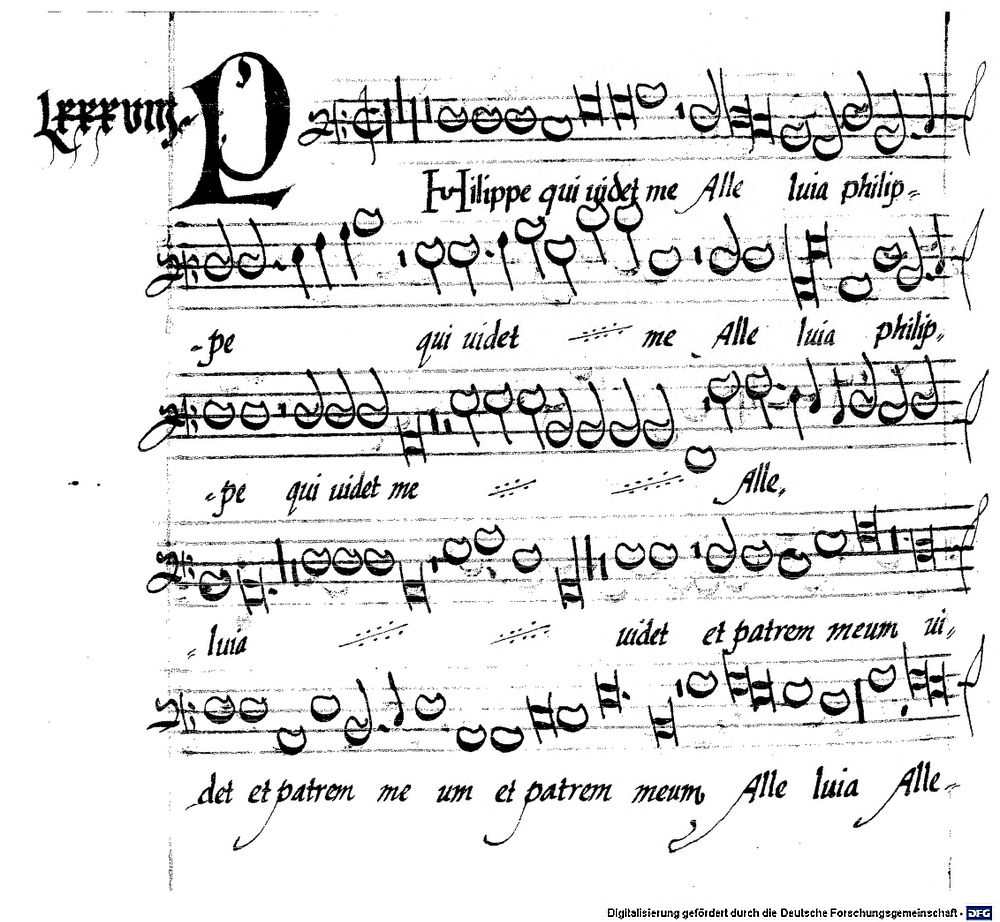 Lxxxviij.
PHilippe qui uidet me Alle luia philip=
=pe qui uidet me Alle luia philip=
=pe qui uidet me Alle,
=luia uidet et patrem meum ui=
det et patrem me um et patrem meum Alle luia Alle=
Digitalisierung gefördert durch die Deutsche Forschungsgemeinschaft - DFG